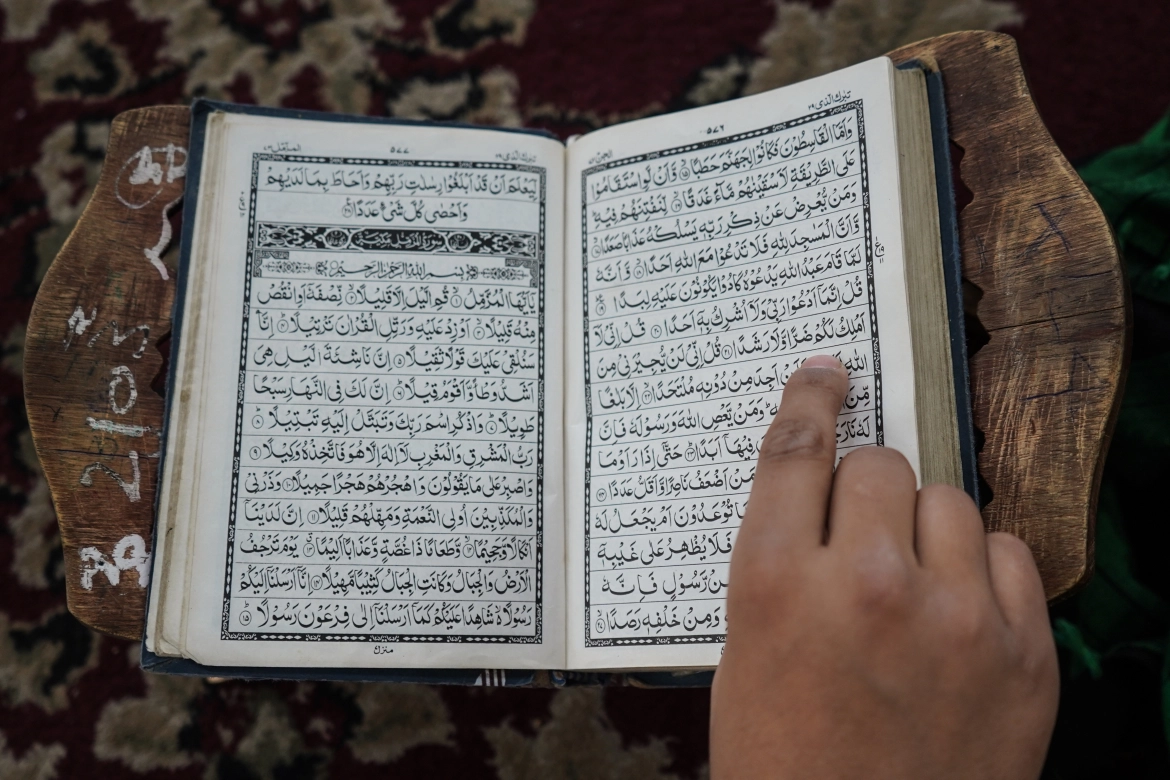 تبٰرك الذی ٢٩
٥٧٦
الجن ٧٢
وَاَمَّا الْقٰسِطُوْنَ فَكَانُوْا لِجَهَنَّمَ حَطَبًا ۙ‏﴿۱۵﴾ وَّاَنْ لَّوِ اسْتَقَامُوْا
عَلَى الطَّرِيْقَةِ لَاَسْقَيْنٰهُمْ مَّآءً غَدَقًا ﴿۱۶﴾ لِّنَفْتِنَهُمْ فِيْهِ
وَمَنْ يُّعْرِضْ عَنْ ذِكْرِ رَبِّهٖ يَسْلُكْهُ عَذَابًا صَعَدًا ﴿۱۷﴾
وَّاَنَّ الْمَسٰجِدَ لِلّٰهِ فَلَا تَدْعُوْا مَعَ اللّٰهِ اَحَدًا ﴿۱۸﴾ وَّاَنَّهٗ
لَمَّا قَامَ عَبْدُ اللّٰهِ يَدْعُوْهُ كَادُوْا يَكُوْنُوْنَ عَلَيْهِ لِبَدًا ﴿۱۹﴾
قُلْ اِنَّمَآ اَدْعُوْا رَبِّىْ وَلَآ اُشْرِكُ بِهٖٓ اَحَدًا ﴿۲۰﴾ قُلْ اِنِّىْ لَآ
اَمْلِكُ لَكُمْ ضَرًّا وَّلَا رَشَدًا ﴿۲۱﴾ قُلْ اِنِّىْ لَنْ يُّجِيْرَنِىْ مِنَ
اللّٰهِ اَجِدَ مِنْ دُوْنِهٖ مُلْتَحَدًا ﴿۲۲﴾ اِلَّا بَلٰغًا
مِّنَ وَمَنْ يَّعْصِ اللّٰهَ وَرَسُوْلَهٗ فَاِنَّ
لَهٗ نَارَ فِيْهَآ اَبَدًا ﴿۲۳﴾ حَتّٰٓى اِذَا رَاَوْا مَا
مَنْ اَضْعَفُ نَاصِرًا وَّاَقَلُّ عَدَدًا ﴿۲۴﴾
تُوْعَدُوْنَ اَمْ يَجْعَلُ لَهٗ
فَلَا يُظْهِرُ عَلٰى غَيْبِهٖٓ
مِنْ رَّسُوْلٍ فَاِنَّهٗ
وَمِنْ خَلْفِهٖ رَصَدًا ﴿۲۷﴾
تبٰرك الذی ٢٩
٥٧٧
المزمل ٧٣
لِّيَعْلَمَ اَنْ قَدْ اَبْلَغُوْا رِسٰلٰتِ رَبِّهِمْ وَاَحَاطَ بِمَا لَدَيْهِمْ
وَاَحْصٰى كُلَّ شَىْءٍ عَدَدًا ﴿۲۸﴾
سورة المزمل مكية
بِسْمِ اللّٰهِ الرَّحْمٰنِ الرَّحِيْمِ
يٰٓاَيُّهَا الْمُزَّمِّلُ ﴿۱﴾ قُمِ الَّيْلَ اِلَّا قَلِيْلًا ﴿۲﴾ نِّصْفَهٗٓ اَوِ انْقُصْ
مِنْهُ قَلِيْلًا ﴿۳﴾ اَوْ زِدْ عَلَيْهِ وَرَتِّلِ الْقُرْاٰنَ تَرْتِيْلًا ﴿۴﴾ اِنَّا
سَنُلْقِىْ عَلَيْكَ قَوْلًا ثَقِيْلًا ﴿۵﴾ اِنَّ نَاشِئَةَ الَّيْلِ هِىَ
اَشَدُّ وَطْـًٔا وَّاَقْوَمُ قِيْلًا ﴿۶﴾ اِنَّ لَكَ فِى النَّهَارِ سَبْحًا
طَوِيْلًا ﴿۷﴾ وَاذْكُرِ اسْمَ رَبِّكَ وَتَبَتَّلْ اِلَيْهِ تَبْتِيْلًا ﴿۸﴾
رَبُّ الْمَشْرِقِ وَالْمَغْرِبِ لَآ اِلٰهَ اِلَّا هُوَ فَاتَّخِذْهُ وَكِيْلًا ﴿۹﴾
وَاصْبِرْ عَلٰى مَا يَقُوْلُوْنَ وَاهْجُرْهُمْ هَجْرًا جَمِيْلًا ﴿۱۰﴾ وَذَرْنِىْ
وَالْمُكَذِّبِيْنَ اُولِى النَّعْمَةِ وَمَهِّلْهُمْ قَلِيْلًا ﴿۱۱﴾ اِنَّ لَدَيْنَآ
اَنْكَالًا وَّجَحِيْمًا ﴿۱۲﴾ وَّطَعَامًا ذَا غُصَّةٍ وَّعَذَابًا اَلِيْمًا ﴿۱۳﴾ يَوْمَ تَرْجُفُ
الْاَرْضُ وَالْجِبَالُ وَكَانَتِ الْجِبَالُ كَثِيْبًا مَّهِيْلًا ﴿۱۴﴾ اِنَّآ اَرْسَلْنَآ اِلَيْكُمْ
رَسُوْلًا شَاهِدًا عَلَيْكُمْ كَمَآ اَرْسَلْنَآ اِلٰى فِرْعَوْنَ رَسُوْلًا ﴿۱۵﴾
منزل